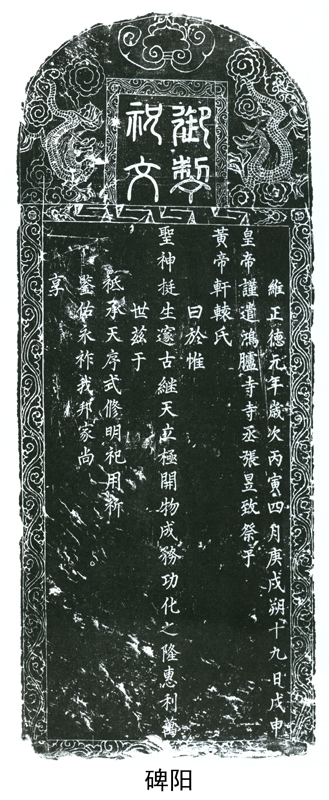 御製
祝文
維正德元年歲次丙寅四月庚戌朔十九日戊申
皇帝謹遣鴻臚寺寺丞張昱致祭乎
黃帝軒轅氏
曰於惟
聖神挺生邃古繼天立極開物成務功化之隆惠利萬
世茲于
祗承天序式修明祀用祈
鑒佑永祚我邦家尚
享
碑阳